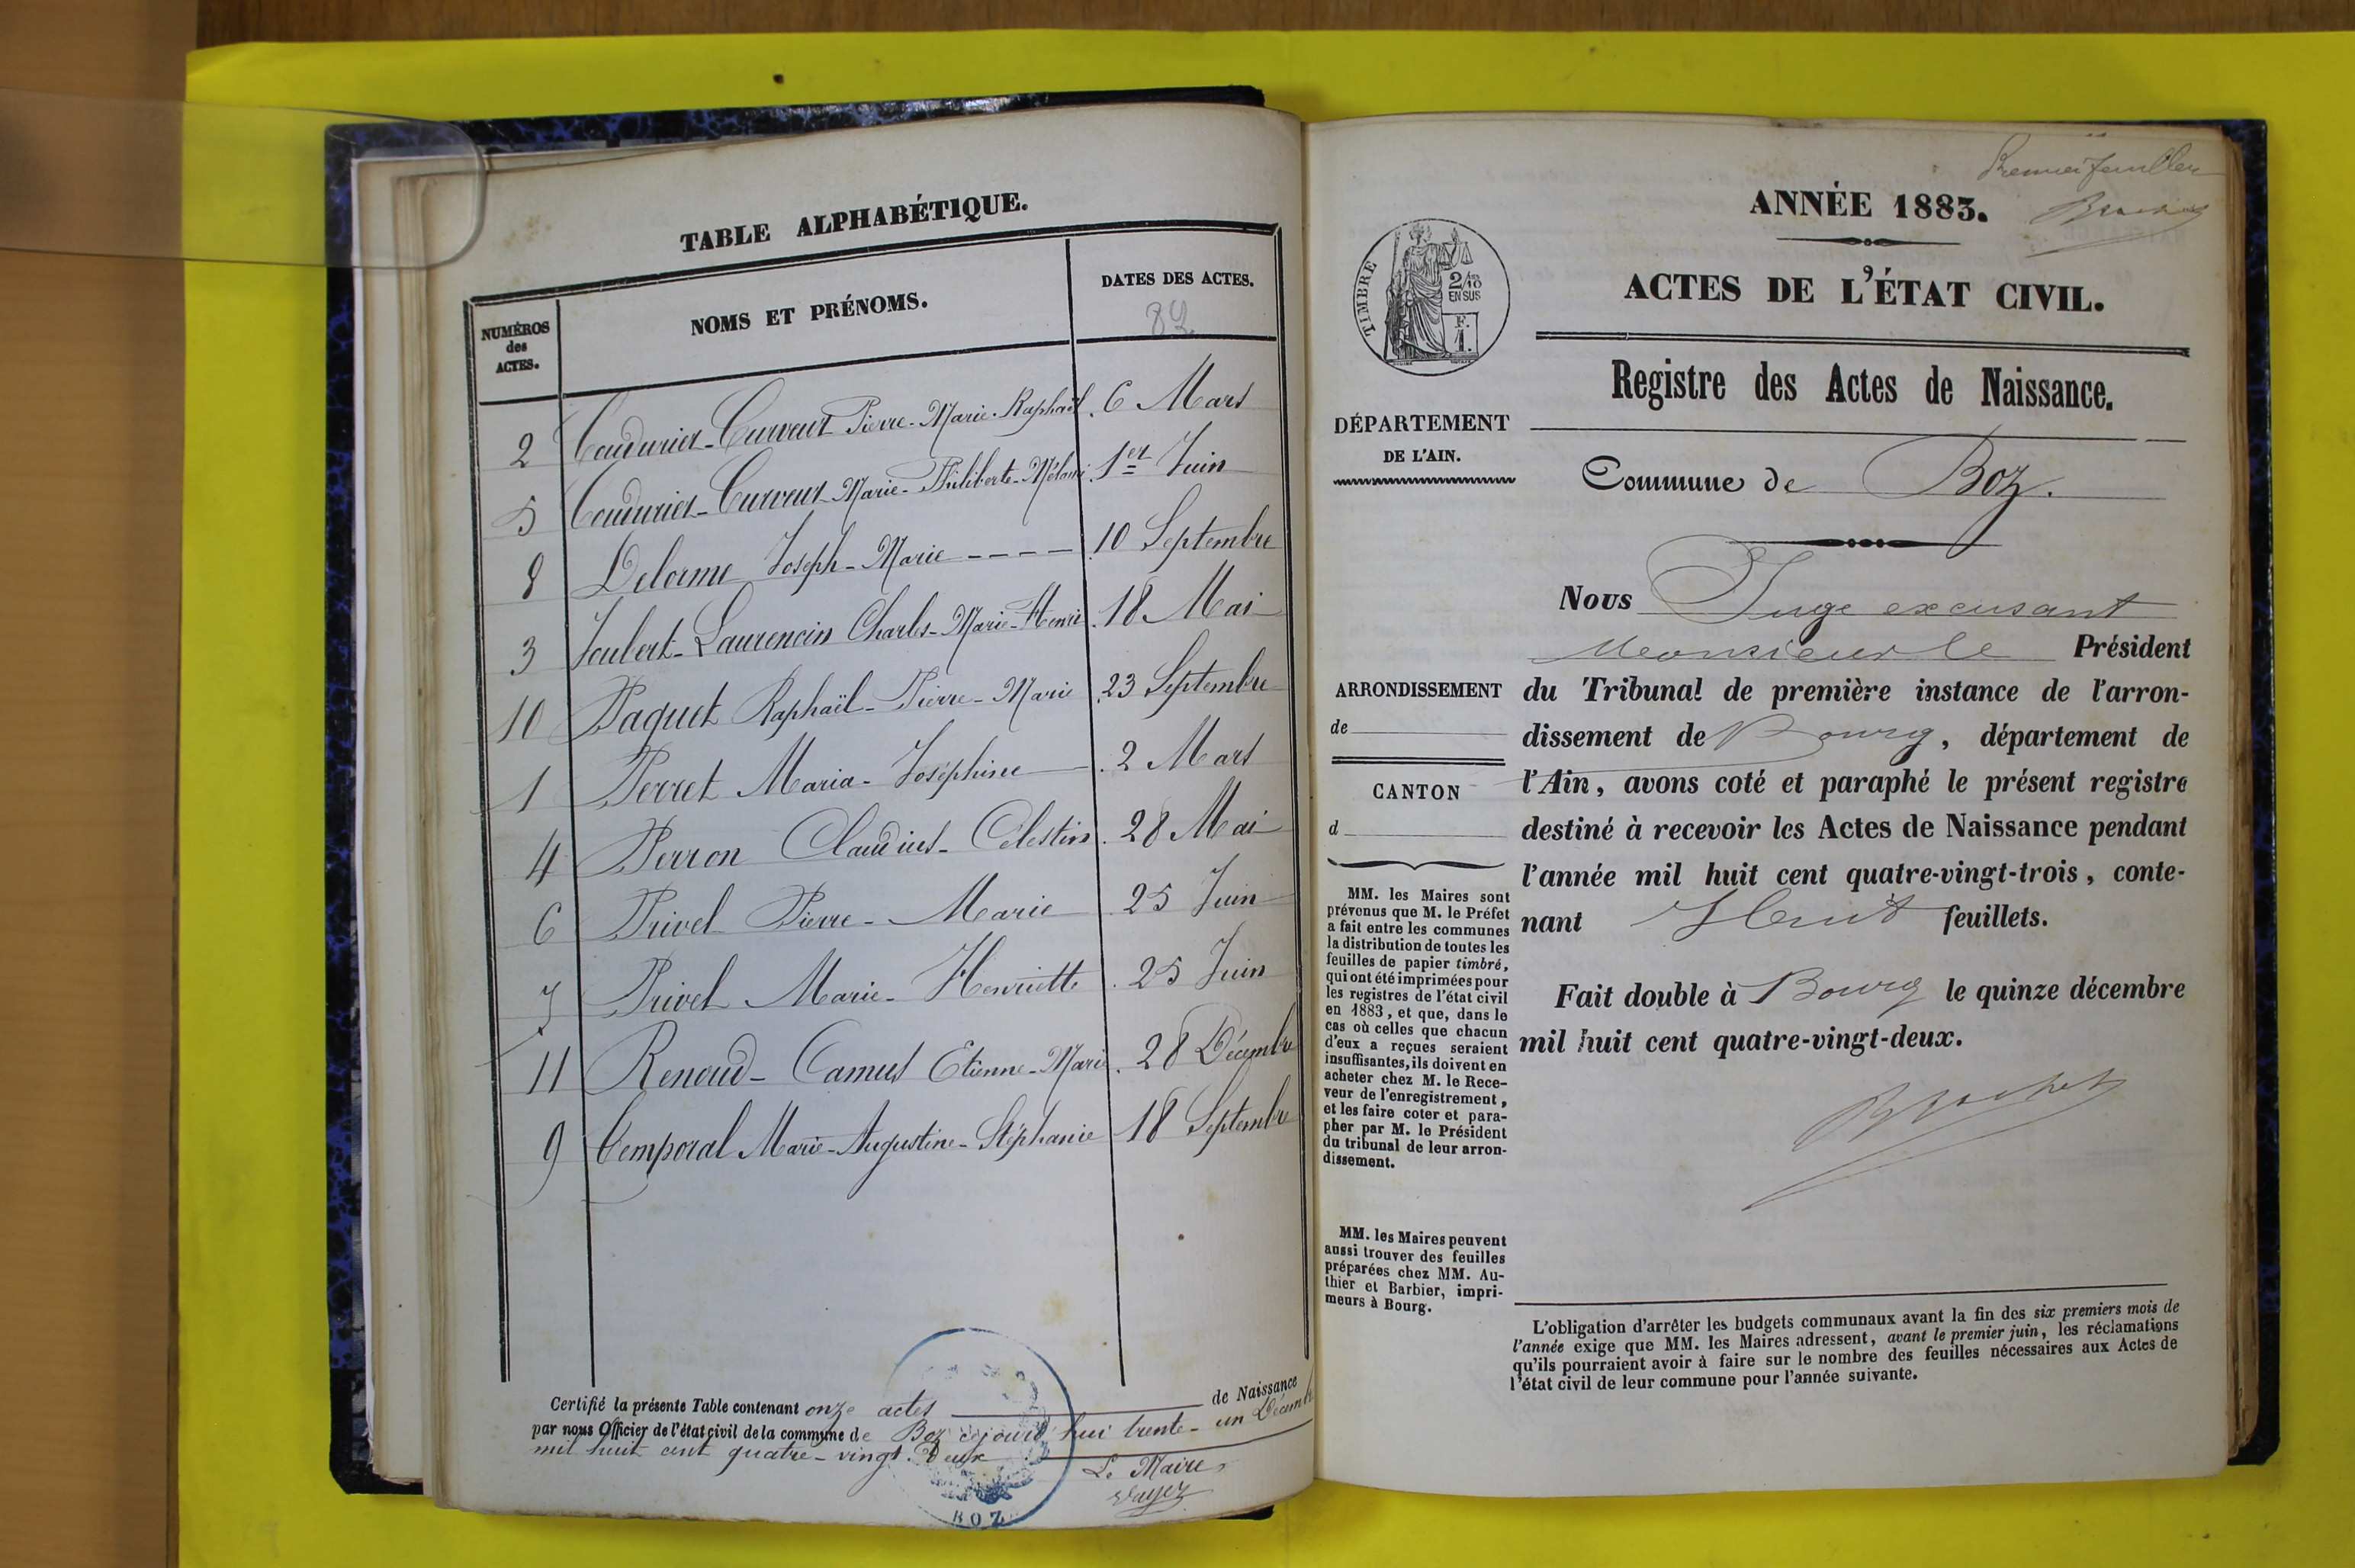 TABLE ALPHABÉTIQUE.
NUMÉROS des ACTES.
NOMS ET PRÉNOMS.
DATES DES ACTES.
82
2 Couturier-Curveur Pierre-Marie-Raphaël. 6 Mars
5 Couturier-Curveur Marie-Philiberte-Mélanie. 1er Juin
8 Delorme Joseph-Marie ---- 10 Septembre
3 Joubert-Laurencin Charles-Marie-Henri. 18 Mai
10 Paquet Raphaël-Pierre-Marie 23 Septembre
1 Perret Maria-Joséphine . 2 Mars
4 Perron Claudius-Célestin. 28 Mai
6 Privel Pierre-Marie 25 Juin
7 Privel Marie-Henriette . 25 Juin
11 Renoud-Camus Etienne-Marie. 28 Décembre
9 Temporal Marie-Augustine-Stéphanie 18 Septembre
Certifié la présente Table contenant onze actes de Naissance
par nous Officier de l'état civil de la commune de Boz cejourd'hui trente-un Décembre
mil huit cent quatre-vingt-deux
Le Maire
BOZ
Premier feuillet
ANNÉE 1883.
ACTES DE L'ÉTAT CIVIL.
TIMBRE
2/10
EN SUS
F.
1.
Registre des Actes de Naissance.
DÉPARTEMENT
DE L'AIN.
Commune de Boz.
Nous Juge excusant
Monsieur le Président
ARRONDISSEMENT
de
CANTON
d
du Tribunal de première instance de l'arron-
dissement de Bourg, département de
l'Ain, avons coté et paraphé le présent registre
destiné à recevoir les Actes de Naissance pendant
l'année mil huit cent quatre-vingt-trois, conte-
nant Huit feuillets.
Fait double à Bourg le quinze décembre
mil huit cent quatre-vingt-deux.
MM. les Maires sont
prévenus que M. le Préfet
a fait entre les communes
la distribution de toutes les
feuilles de papier timbré,
qui ont été imprimées pour
les registres de l'état civil
en 1883, et que, dans le
cas où celles que chacun
d'eux a reçues seraient
insuffisantes, ils doivent en
acheter chez M. le Rece-
veur de l'enregistrement,
et les faire coter et para-
pher par M. le Président
du tribunal de leur arron-
dissement.
MM. les Maires peuvent
aussi trouver des feuilles
préparées chez MM. Au-
thier et Barbier, impri-
meurs à Bourg.
L'obligation d'arrêter les budgets communaux avant la fin des six premiers mois de
l'année exige que MM. les Maires adressent, avant le premier juin, les réclamations
qu'ils pourraient avoir à faire sur le nombre des feuilles nécessaires aux Actes de
l'état civil de leur commune pour l'année suivante.